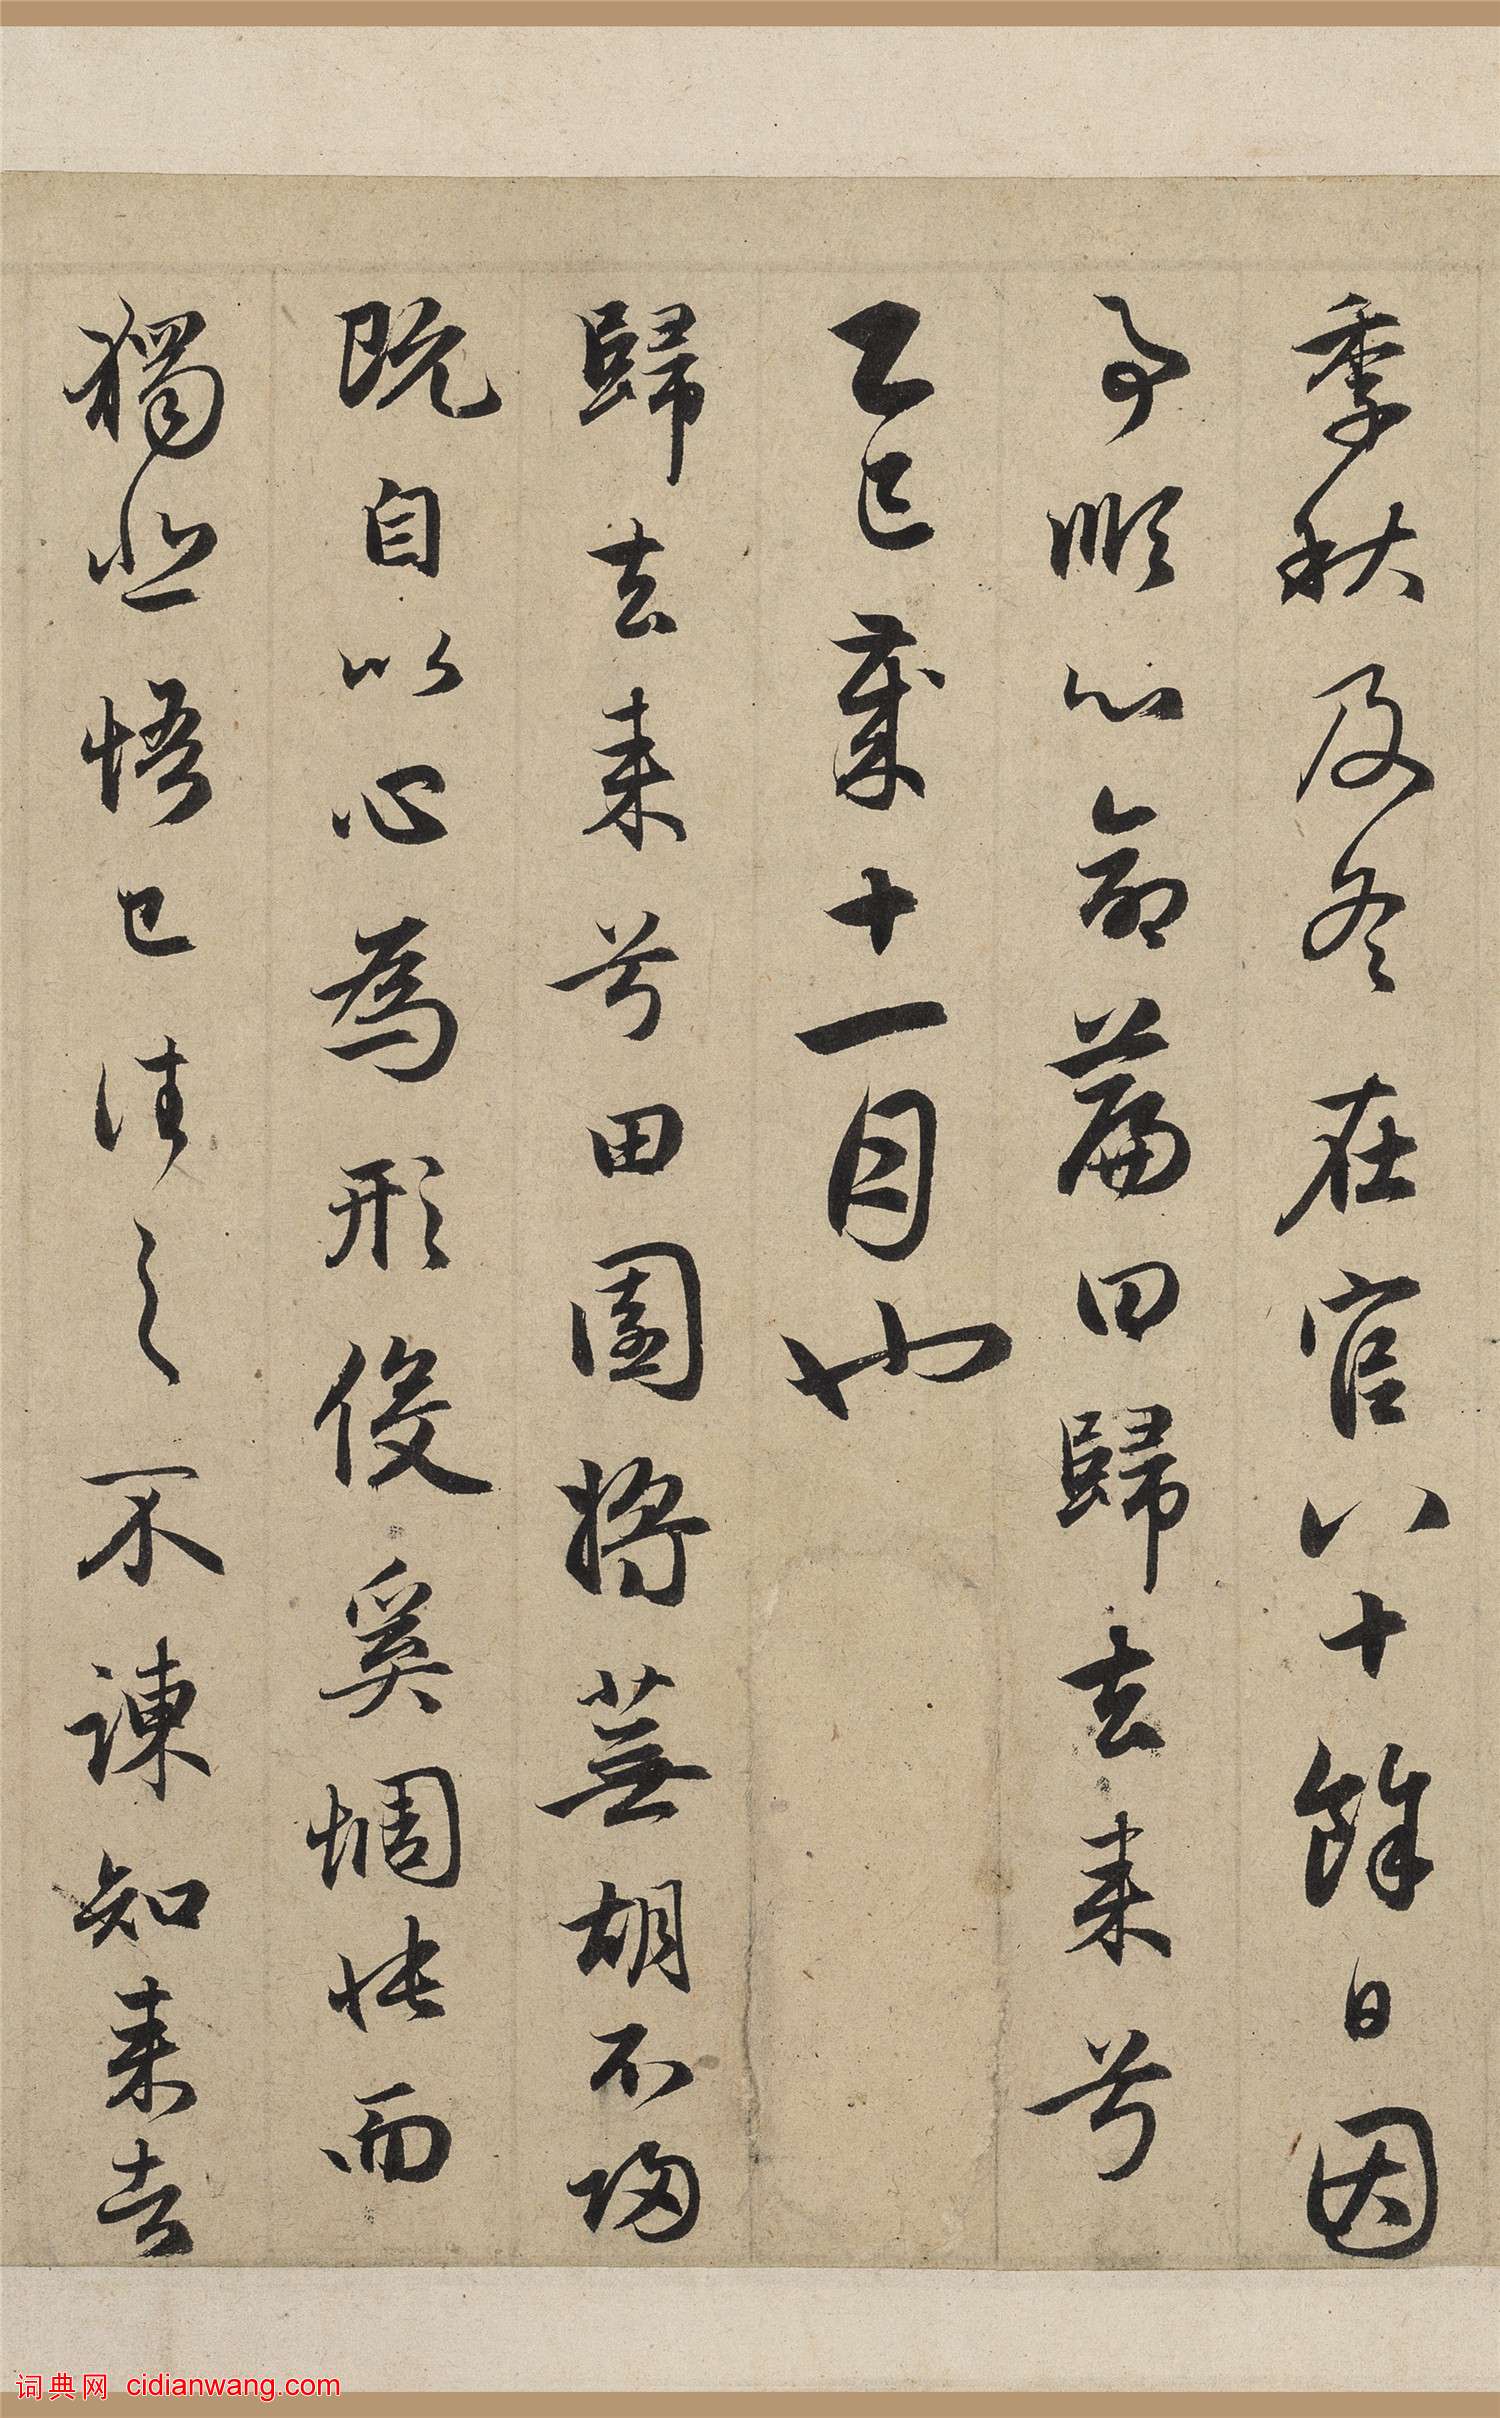 季秋及冬在官八十餘日因
事順心命篇曰歸去来兮
乙巳歲十一月也
歸去来兮田園將蕪胡不歸
既自以心為形役奚惆悵而
獨悲悟已往之不諫知来者
词典网 cidianwang.com